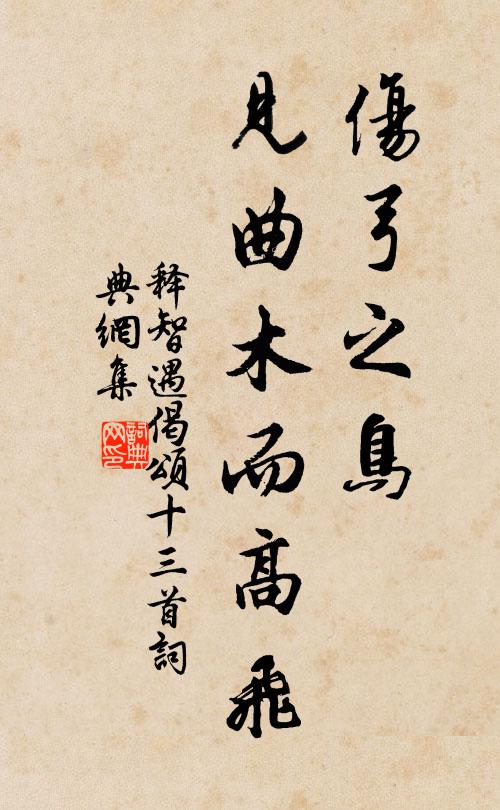 傷弓之鳥
見曲木而高飛
释智遇偈頌十三首詞
典網集
詞典
网印